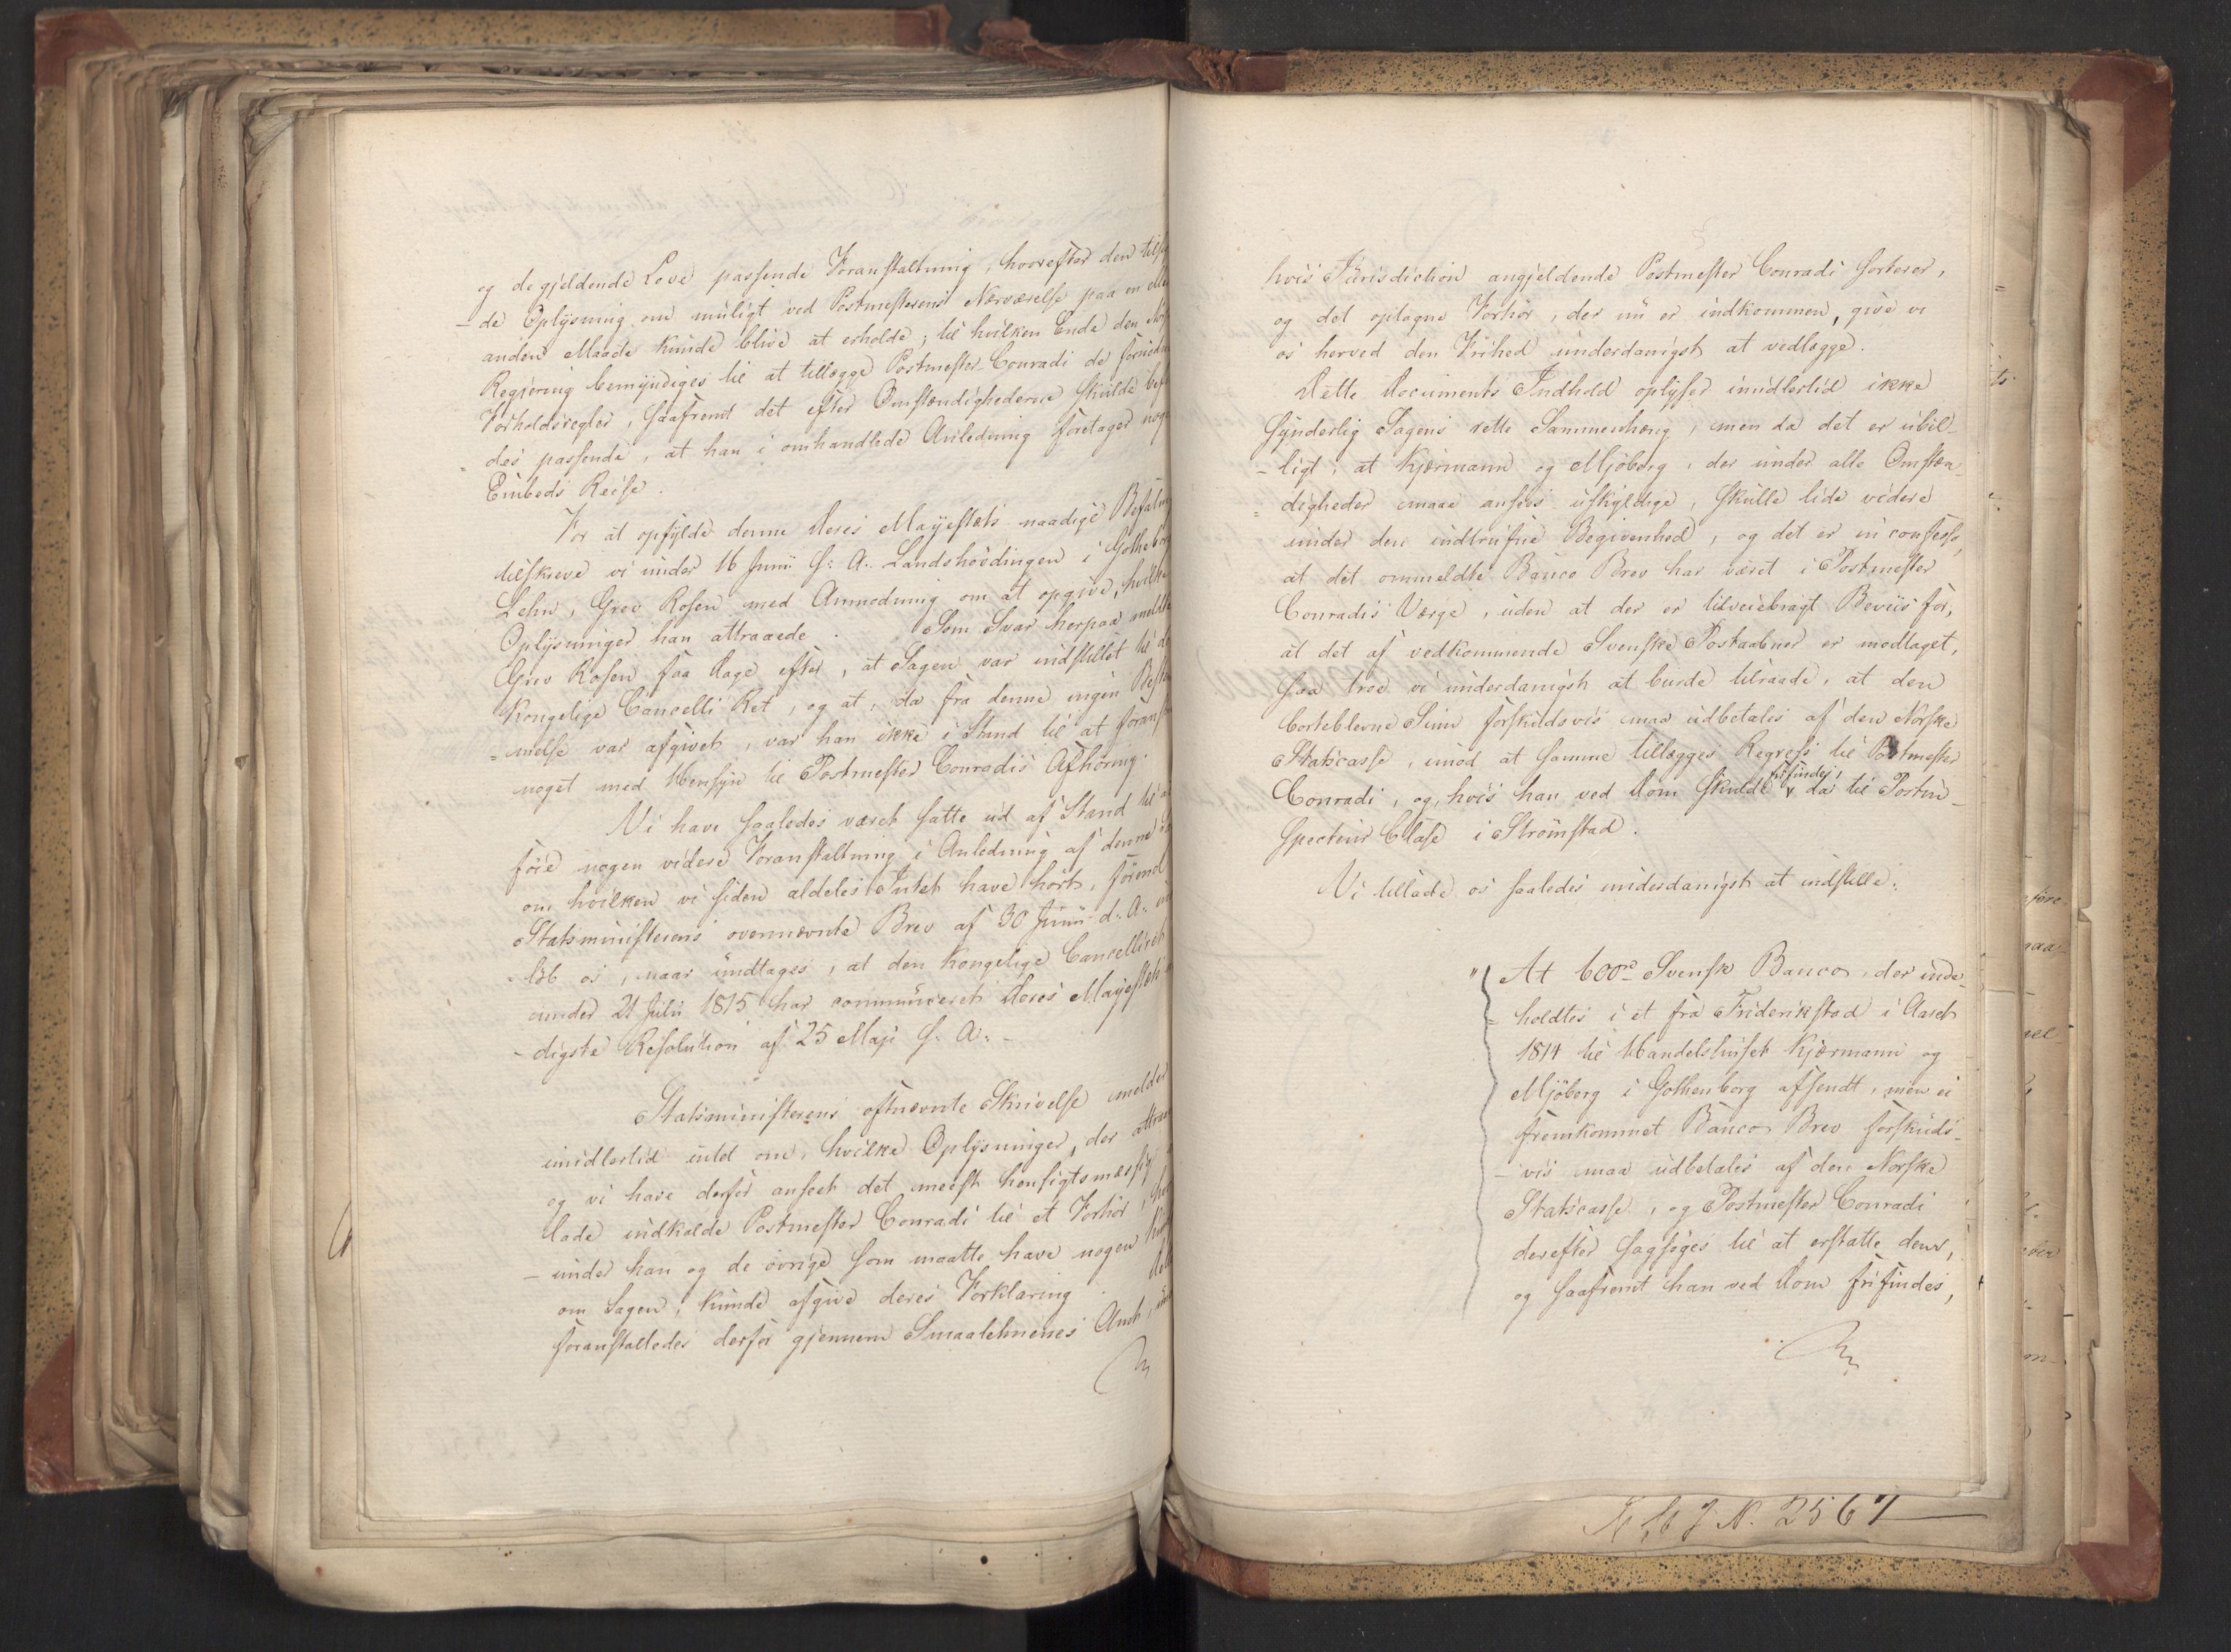 og de gjeldende Love passende Foranstaltning, hvorefter den
- de Oplysning om muligt ved Postmesterens Nærværelse paa en
anden Maade kunde blive at erholde; til hvilken Ende den
Regjering bemyndiges til at tillægge Postmester Conradi de
Forholdsregler, saafremt det efter Omstændighederne skulde
= des passende, at han i omhandlede Anledning foretager
Embeds Reise.
For at opfylde denne Deres Mayestæts naadige
tilskreve vi under 16 Junii s: A: Landshøvdingen i
Lehn, Grev Rosen med Anmodning om at opgive,
Oplysninger han attraaede. Som Svar herpaa
Grev Rosen faa Dage efter, at Sagen var indstillet til
Kongelige Cancelli Ret, og at, da fra denne ingen
= melse var afgivet, var han ikke i Stand til at
noget med Hensyn til Postmester Conradis Afhøring.
Vi have saaledes været satte ud af Stand til
føie nogen videre Foranstaltning i Anledning af denne
om hvilken vi siden aldeles Intet have hørt, førend
Statsministerens ovennævnte Brev af 30 Junii d: A:
- løb os, naar undtages, at den Kongelige Cancelliret
under 21 Julii 1815 har communiceret Deres Mayestæts
- digste Resolution af 25 Maji s: A: -
Statsministerens oftnævnte Skrivelse melder
imidlertid intet om, hvilke Oplysninger, der
og vi have derfor anseet det meest hensigtsmæssig
lade indkalde Postmester Conradi til et Forhør,
- under han og de øvrige som maatte have nogen
om Sagen, kunde afgive deres Forklaring.
foranstaltedes derfor gjennem Smaalehnenes Amt,
hvis Jurisdiction angjeldende Postmester Conradi sorterer,
og det optagne Forhør, der nu er indkommen, give vi
os herved den Frihed underdanigst at vedlægge.
Dette Documents Indhold oplyser imidlertid ikke
synderlig Sagens rette Sammenhæng, men da det er ubil-
- ligt, at Kjærmann og Mjöberg, der under alle Omstæn
= digheder maae ansees uskyldige, skulle lide videre
under den indtrufne Begivenhed, og det er in confesso,
at det ommeldte Banco Brev har været i Postmester
Conradis Værge, uden at der er tilveiebragt Beviis for,
at det af vedkommende Svenske Postaabner er modtaget,
saa troe vi underdanigst at burde tilraade, at den
bortblevne Sum forskudsvis maa udbetales af den Norske
Statscasse, imod at samme tillægges Regress til Postmester
Conradi, og, hvis han ved Dom skulde frifindes, da til Postin-
specteur Clase i Strømstad.
Vi tillade os saaledes underdanigst at indstille:
" At 600rd Svensk Banco, der inde-
holdtes i et fra Friderikstad i Aaret
1814 til Handelshuset Kjærmann og
Mjöberg i Gothenborg afsendt, men ei
fremkommet Banco Brev forskuds-
- vis maa udbetales af den Norske
Statscasse, og Postmester Conradi
derefter sagsøges til at erstatte dem,
og saafremt han ved Dom frifindes,
J. N. 2567